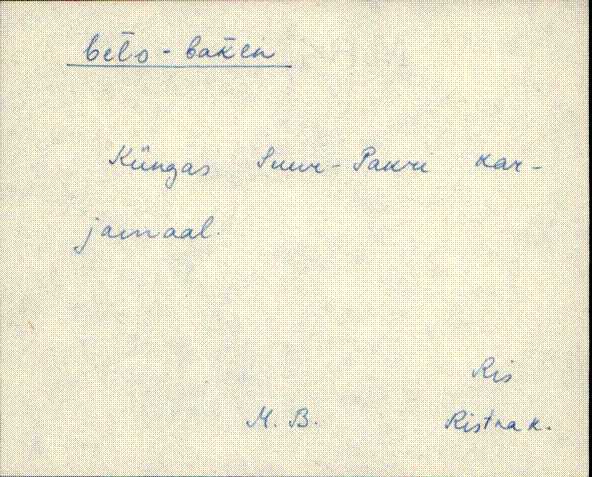 bēto - baken
Küngas Suur-Pakri kar-
jamaal.
Ris
M. B. Ristna k.